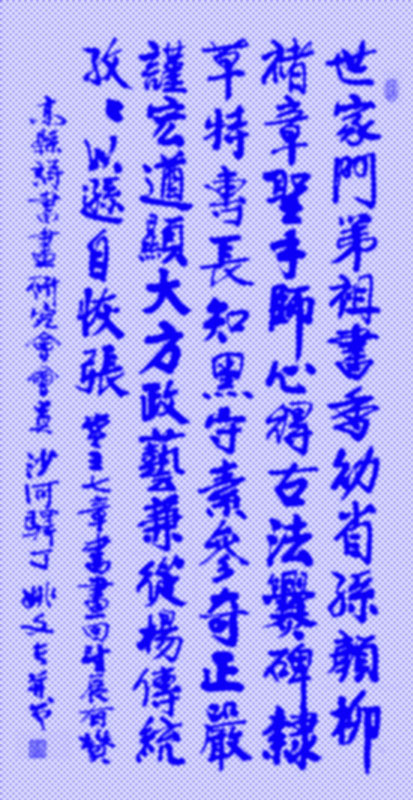 世家門弟祖書香幼省孫顏柳
褚章聖手師心得古法爨碑隸
草特書長知黑守素參奇正嚴
謹宏道顯大方政藝兼從楊傳統
孜〻以遜自恢張 七章書畫回展有贊
高縣詩書畫研究會會員 沙河驛丁 姚文